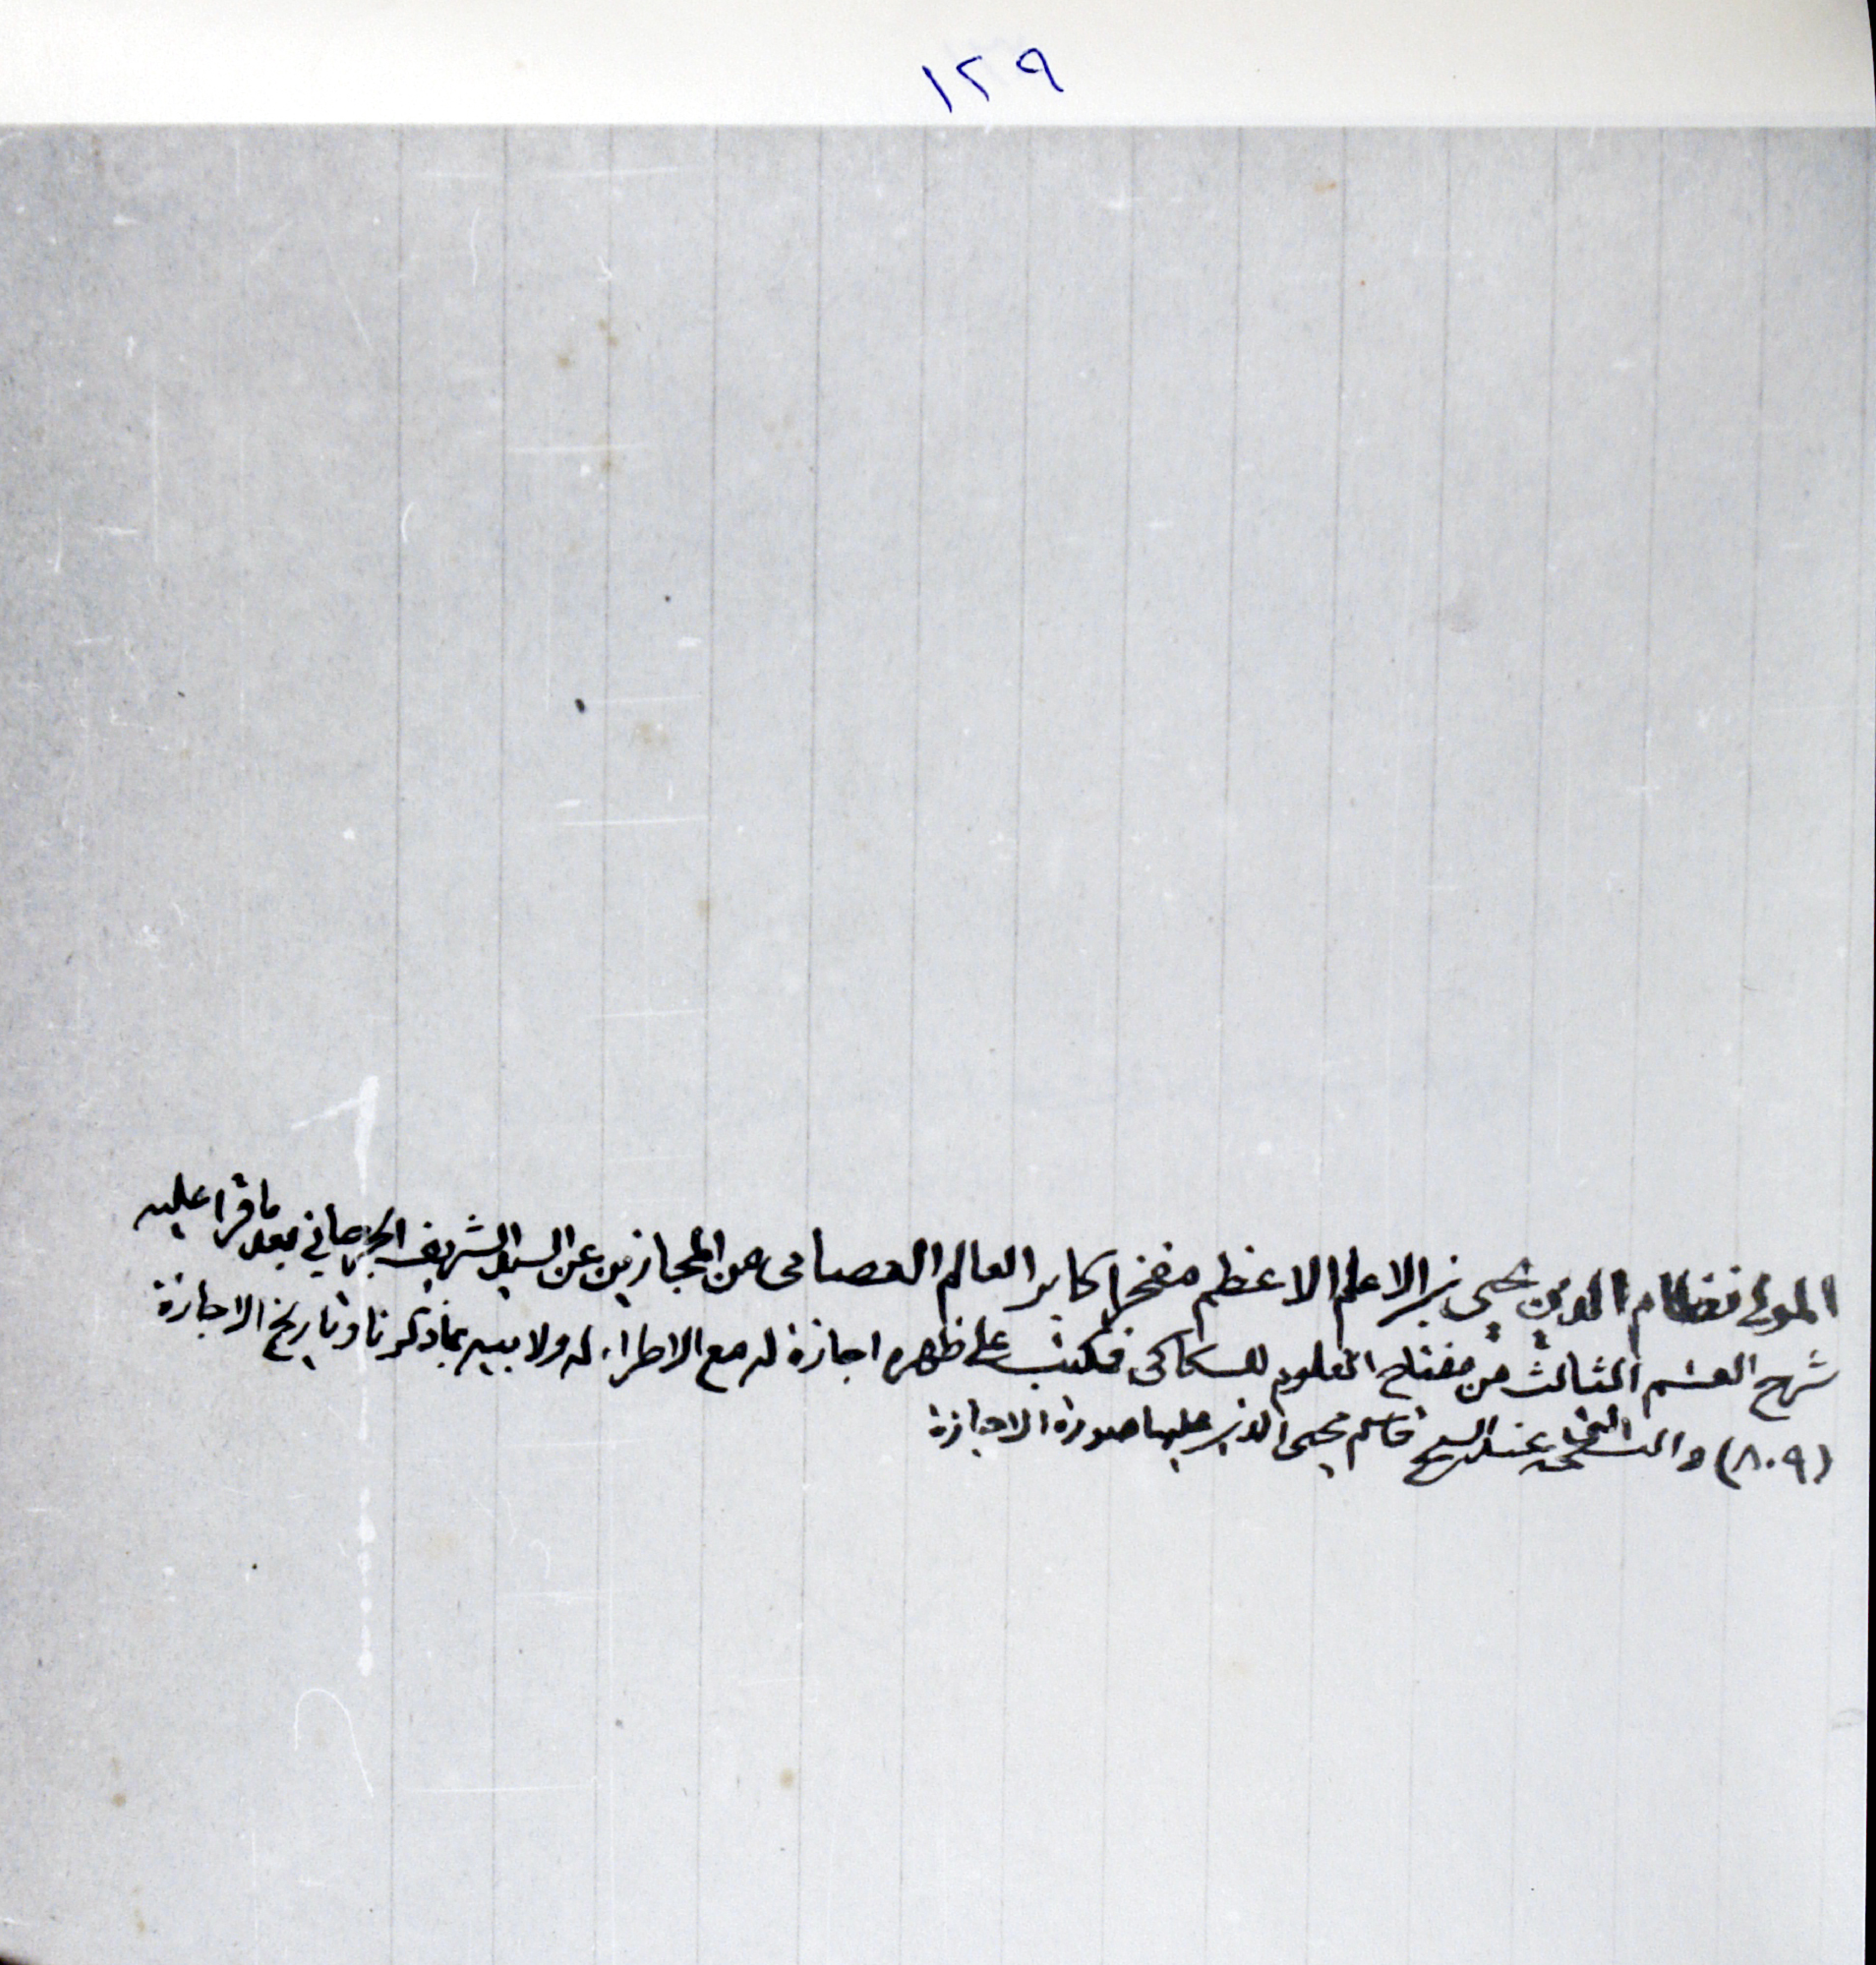 ١٢٩
المولى نظام الدين يحيى بن الاعلم الاعظم مفخر اكابر العالم القصامى من المجازين عن السيد الشريف الجرجاني بعد ما قرا عليه
شرح القسم الثالث من مفتاح العلوم للسكاكى فكتب على ظهره اجازة له مع الاطراء له ولابيه بما ذكرنا وتاريخ الاجازة
(٨٠٩) والنسخة عند الشيخ قاسم محيى الدين عليها صورة الاجازة